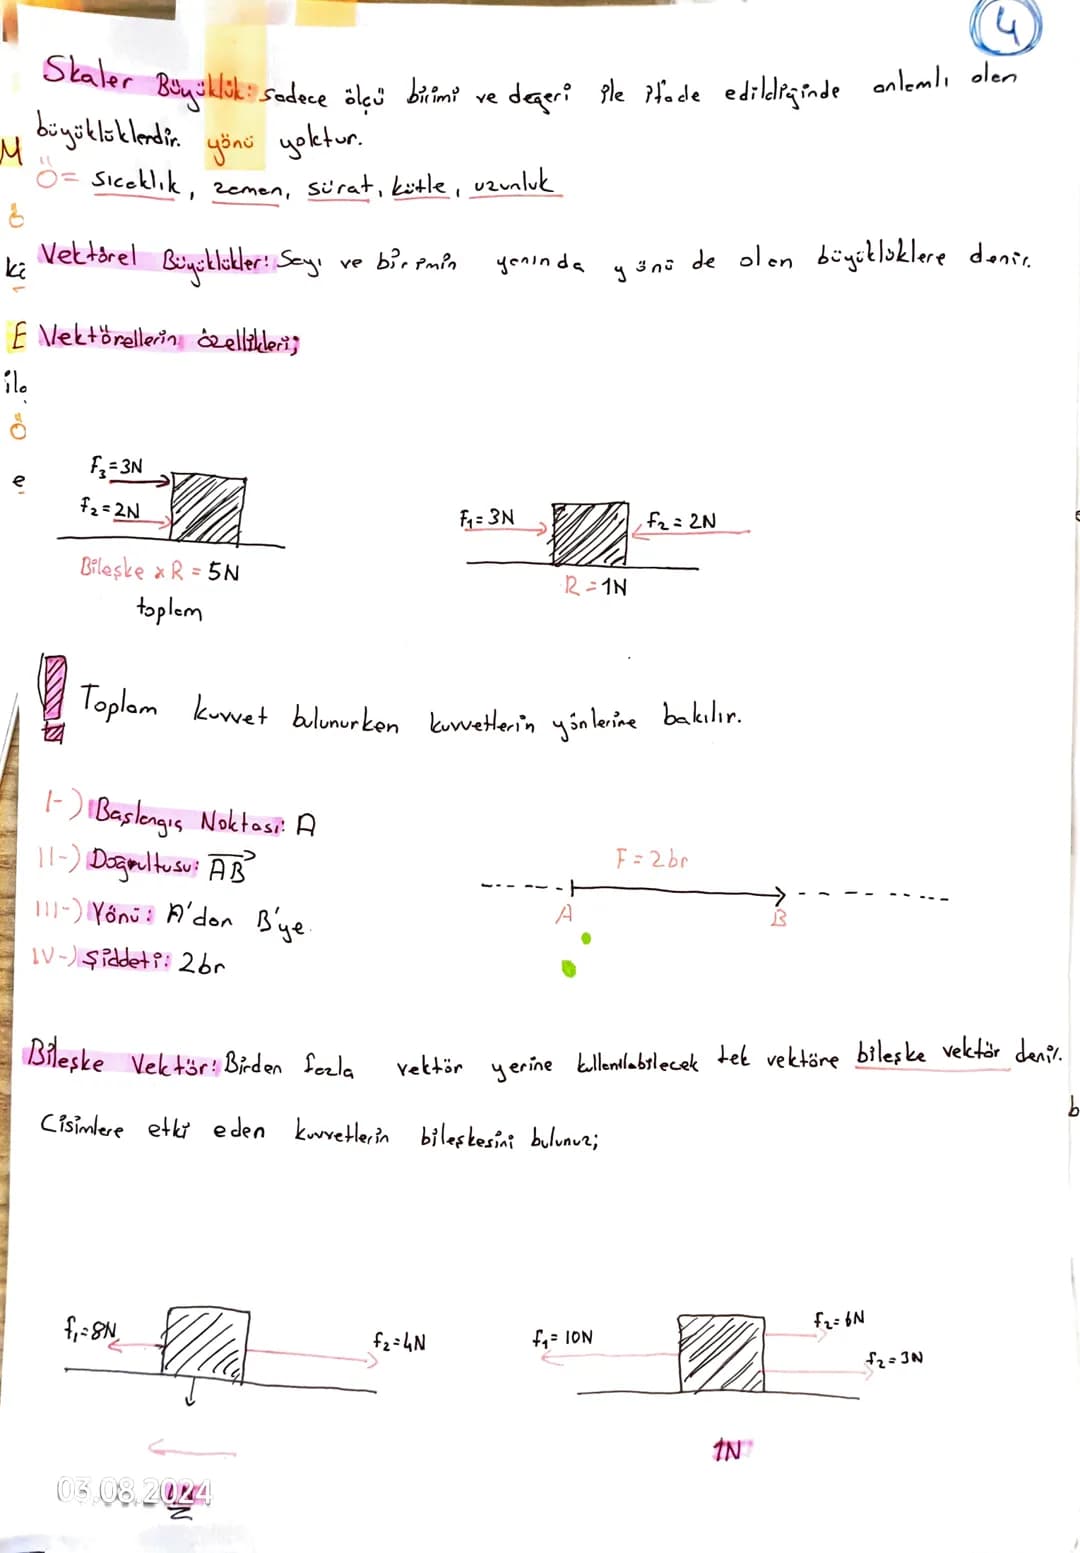 4
Skaler Büyüklük: sadece ölçü birimi ve değeri ile ifade edildiğinde anlamlı olan
büyüklüklerdir. yönü yoktur.
Ö= sıcaklık, zaman, sürat, kütle, uzunluk
Vektörel Büyüklükler: Sayı ve birimin yanında yönü de olan büyüklüklere denir.
Vektörellerin özellikleri;
M
ö
ki
E
ile
Ö
e
F₃=3N
f₂=2N
Bileşke x R = 5N
toplam
F₁=3N
f₂=2N
R=1N
! Toplam kuvvet bulunurken kuvvetlerin yönlerine bakılır.
I-) Başlangıç Noktası: A
II-) Doğrultusu: AB
III-) Yönü: A'dan B'ye.
IV-) Şiddeti: 2br
F=2br
A
B
Bileşke Vektör: Birden fazla vektör yerine kullanılabilecek tek vektöre bileşke vektör denir.
b
Cisimlere etki eden kuvvetlerin bileşkesini bulunuz;
f₁=8N
f₂=4N
f₁=10N
f₂=6N
f₂=3N
1N
03.08.2024